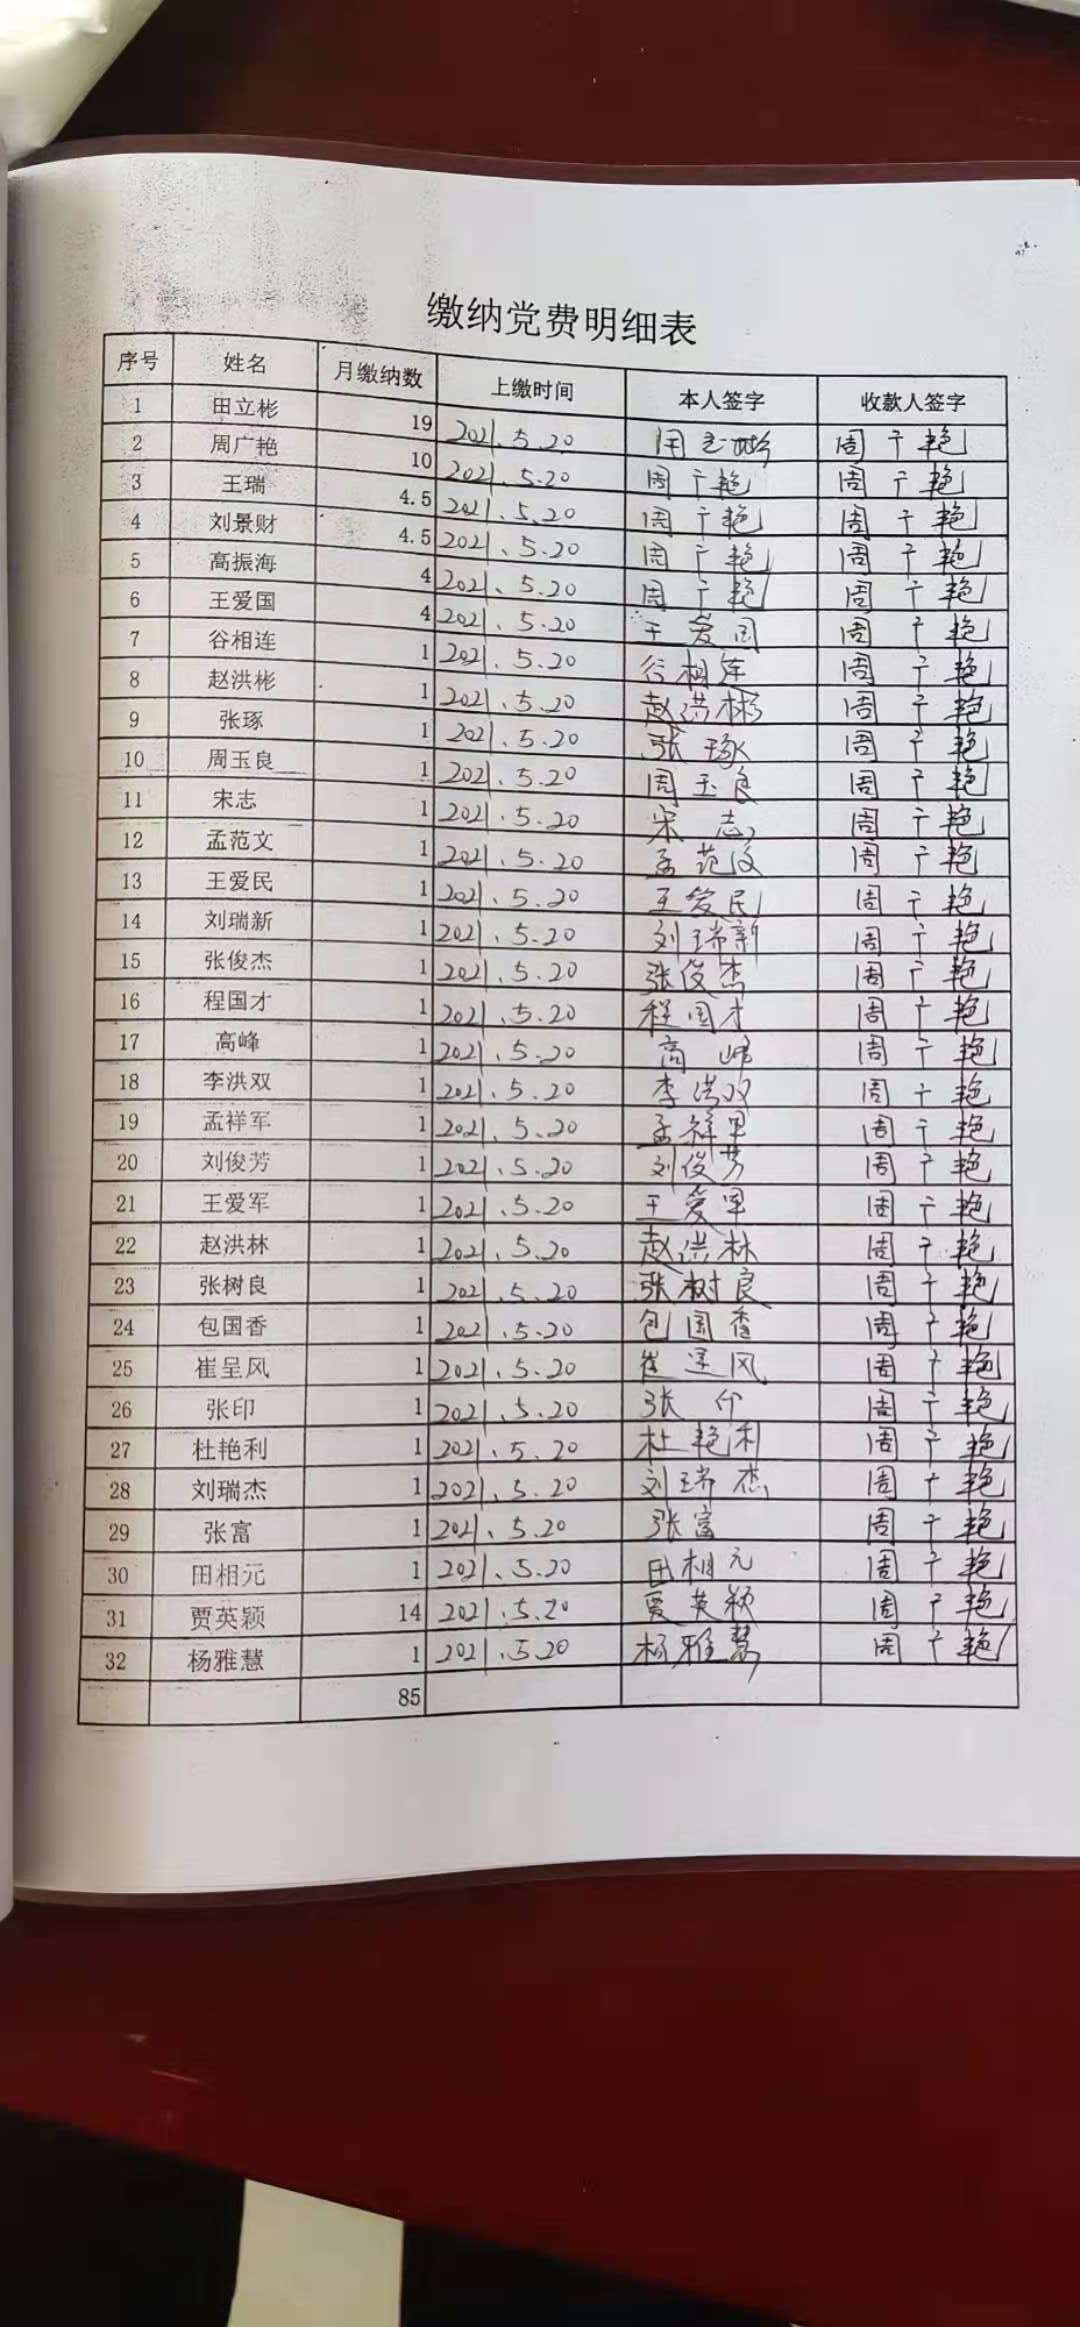 缴纳党费明细表
序号 姓名 月缴纳数 上缴时间 本人签字 收款人签字
1 田立彬 19 2021.5.20 周广艳
2 周广艳 10 2021.5.20 周广艳 周广艳
3 王瑞 4.5 2021.5.20 周广艳 周广艳
4 刘景财 4.5 2021.5.20 周广艳 周广艳
5 高振海 4 2021.5.20 周广艳 周广艳
6 王爱国 4 2021.5.20 王爱国 周广艳
7 谷相连 1 2021.5.20 谷相连 周广艳
8 赵洪彬 1 2021.5.20 赵洪彬 周广艳
9 张琢 1 2021.5.20 张琢 周广艳
10 周玉良 1 2021.5.20 周玉良 周广艳
11 宋志 1 2021.5.20 宋志 周广艳
12 孟范文 1 2021.5.20 孟范文 周广艳
13 王爱民 1 2021.5.20 王爱民 周广艳
14 刘瑞新 1 2021.5.20 刘瑞新 周广艳
15 张俊杰 1 2021.5.20 张俊杰 周广艳
16 程国才 1 2021.5.20 程国才 周广艳
17 高峰 1 2021.5.20 高峰 周广艳
18 李洪双 1 2021.5.20 李洪双 周广艳
19 孟祥军 1 2021.5.20 孟祥军 周广艳
20 刘俊芳 1 2021.5.20 刘俊芳 周广艳
21 王爱军 1 2021.5.20 王爱军 周广艳
22 赵洪林 1 2021.5.20 赵洪林 周广艳
23 张树良 1 2021.5.20 张树良 周广艳
24 包国香 1 2021.5.20 包国香 周广艳
25 崔呈风 1 2021.5.20 崔呈风 周广艳
26 张印 1 2021.5.20 张印 周广艳
27 杜艳利 1 2021.5.20 杜艳利 周广艳
28 刘瑞杰 1 2021.5.20 刘瑞杰 周广艳
29 张富 1 2021.5.20 张富 周广艳
30 田相元 1 2021.5.20 田相元 周广艳
31 贾英颖 14 2021.5.20 贾英颖 周广艳
32 杨雅慧 1 2021.5.20 杨雅慧 周广艳
85